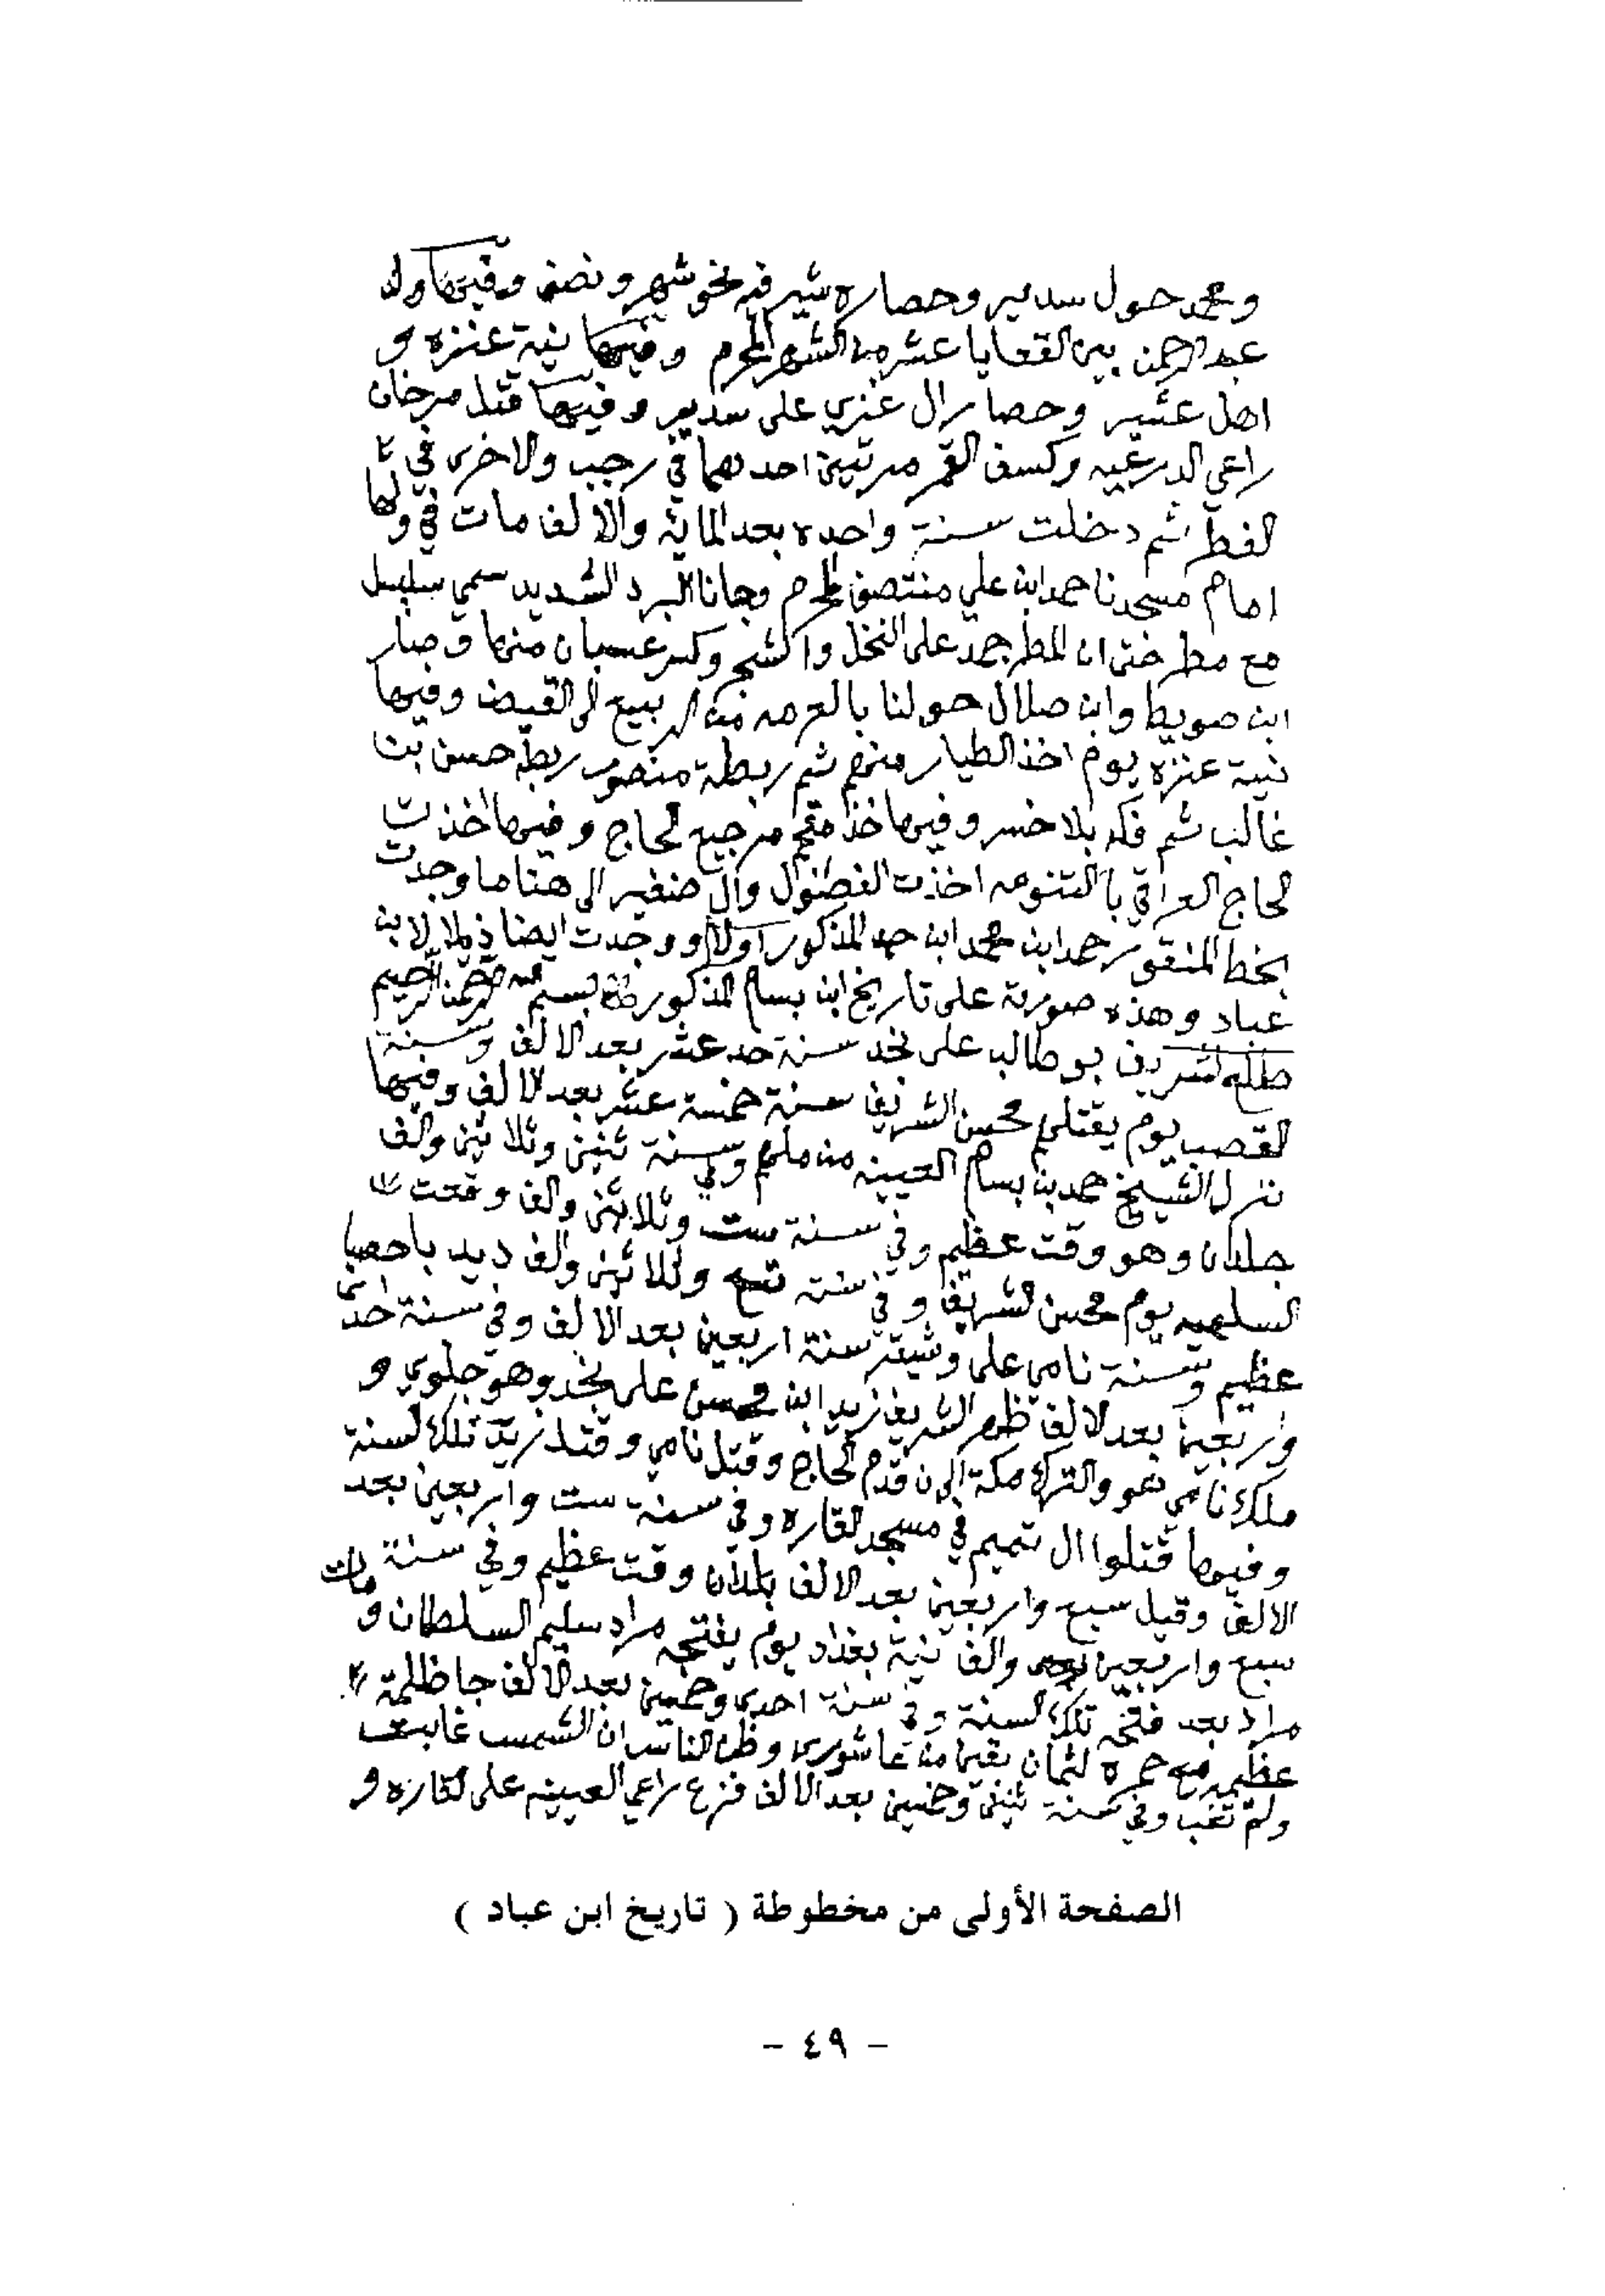 ومحمد حول سدير وحصاره شير فيه نحو شهر ونصف وفيها ولد
عبد الرحمن بين القعايا عشر من الشهر المحرم وفيها نية عنزه و
اهل عشير وحصار ال غزي على سدير وفيها قتل مرخان
راعي الدرعيه وكسف القمر مرتين احدهما في رجب والاخرى في
الفطر ثم دخلت سنة واحده بعد المائة والالف مات في ولها
امام مسجدنا حمد ابن علي منتصف المحرم وجانا البرد الشديد سمي سليسل
مع مطر حتى ان المطر جمد على النخل والشجر وكسر عسبان منها وصار
ابن صويط وابن صلال حولنا بالعرمه من الربيع الى القيض وفيها
نية عنزه يوم اخذ الطيار منهم ثم ربطة منصور ربطه حسن بن
غالب ثم فكه بلا خسر وفيها خذ مقحم مرجيع الحاج وفيها اخذت
الحاج العراقي بالتنومه اخذت الفضول وآل ضفير الى هنا ما وجدت
بخط المنقور حمد ابن محمد ابن حمد المذكور اولا ووجدت ايضا ذيلا لابن
عباد وهذه صورته على تاريخ ابن بسام المذكور بسم الله الرحمن الرحيم
طلع الشريف بو طالب على نجد سنة حد عشر بعد الالف وسنة
القصب يوم يقتلهم محسن الشريف سنة خمسة عشر بعد الالف وفيها
نزل الشيخ حمد بن بسام العيينه من ملهم وفي سنة ثنين وثلاثين والف
جلدان وهو وقت عظيم وفي سنة ست وثلاثين والف وقعت
السلهيه يوم محسن الشريف وفي سنة تسع وثلاثين والف ديد باحصبا
عظيم وسنة نامي على وشيقر سنة اربعين بعد الالف وفي سنة احدى
واربعين بعد الالف ظهر الشريف زيد ابن محسن على نجد وهو جلوي و
ملك نامي هو والترك مكة الى ن قدم الحاج وقتل نامي وقتله زيد تلك السنة
وفيها قتلوا ال تميم في مسجد القاره وفي سنة ست واربعين بعد
الالف وقيل سبع واربعين بعد الالف بلدان وقت عظيم وفي سنة
سبع واربعين والف نية بغداد يوم يفتحه مراد سليم السلطان ومات
مراد بعد فتحه تلك السنة وفي سنة احدى وخمسين بعد الالف جا ظلمة
عظيمه مع حمره لثمان بقين من عاشورى وظن الناس ان الشمس غابت
ولم تغب وفي سنة ثنين وخمسين بعد الالف فزع راعي العيينه على القاره و
الصفحة الأولى من مخطوطة ( تاريخ ابن عباد )
- ٤٩ -